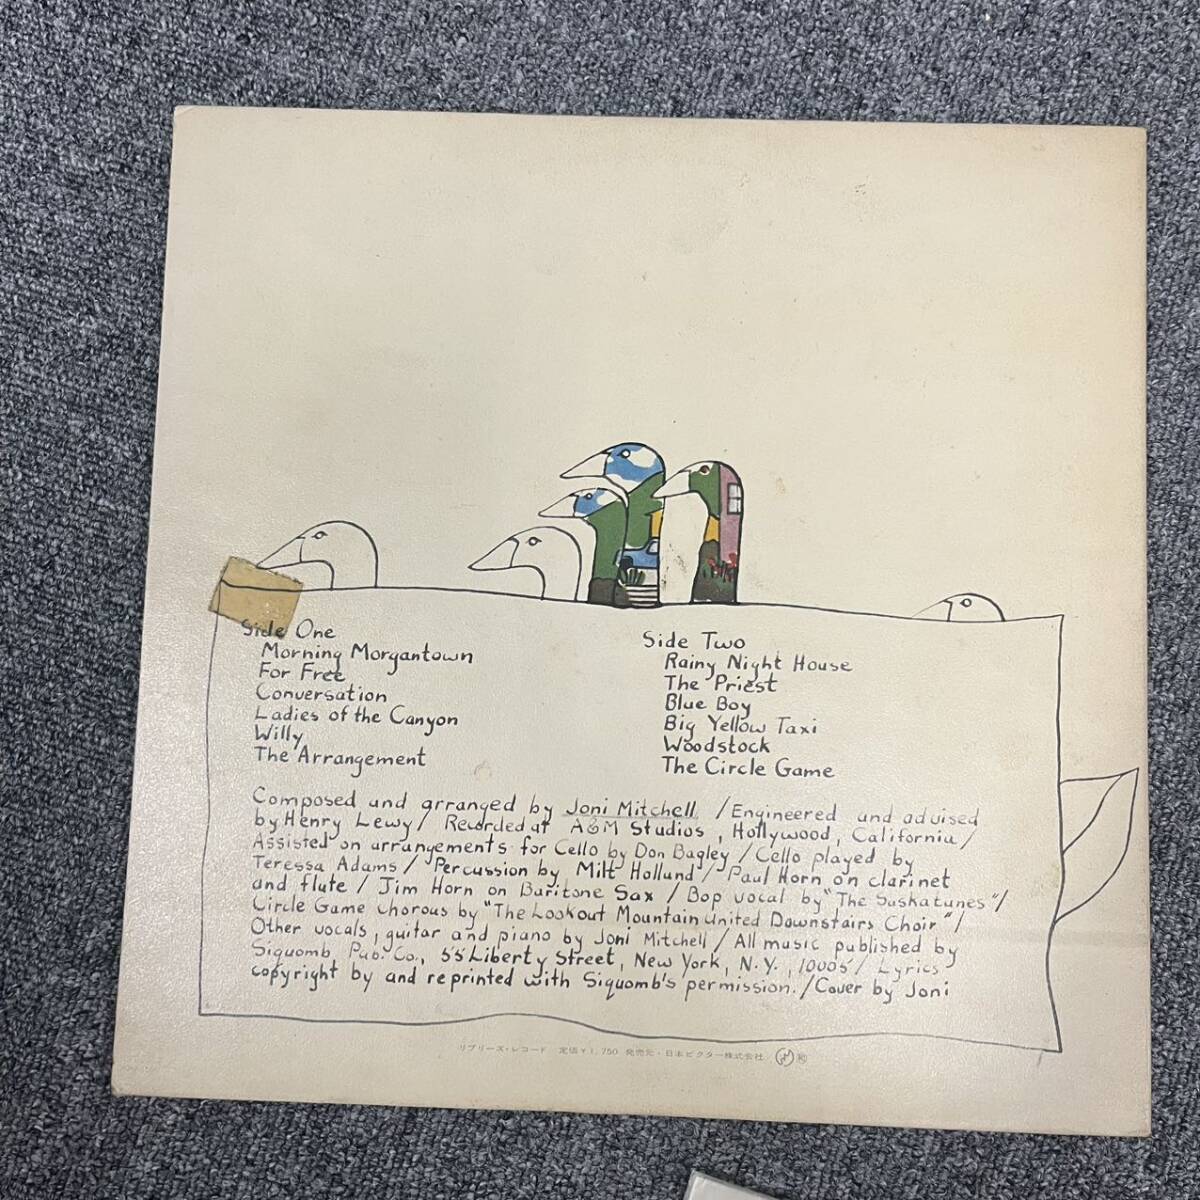 Side One
Morning Morgantown
For Free
Conversation
Ladies of the Canyon
Willy
The Arrangement
Side Two
Rainy Night House
The Priest
Blue Boy
Big Yellow Taxi
Woodstock
The Circle Game
Composed and arranged by Joni Mitchell / Engineered and advised
by Henry Lewy / Recorded at A&M Studios, Hollywood, California /
Assisted on arrangements for Cello by Don Bagley / Cello played by
Teressa Adams / Percussion by Milt Holland / Paul Horn on clarinet
and flute / Jim Horn on Baritone Sax / Bop vocal by "The Saskatunes" /
Circle Game Chorous by "The Lookout Mountain United Downstairs Choir" /
Other vocals, guitar and piano by Joni Mitchell / All music published by
Siquomb Pub. Co., 55 Liberty Street, New York, N.Y., 10005 / Lyrics
copyright by and reprinted with Siquomb's permission. / Cover by Joni
リプリーズ・レコード 定価¥1,750 発売元・日本ビクター株式会社